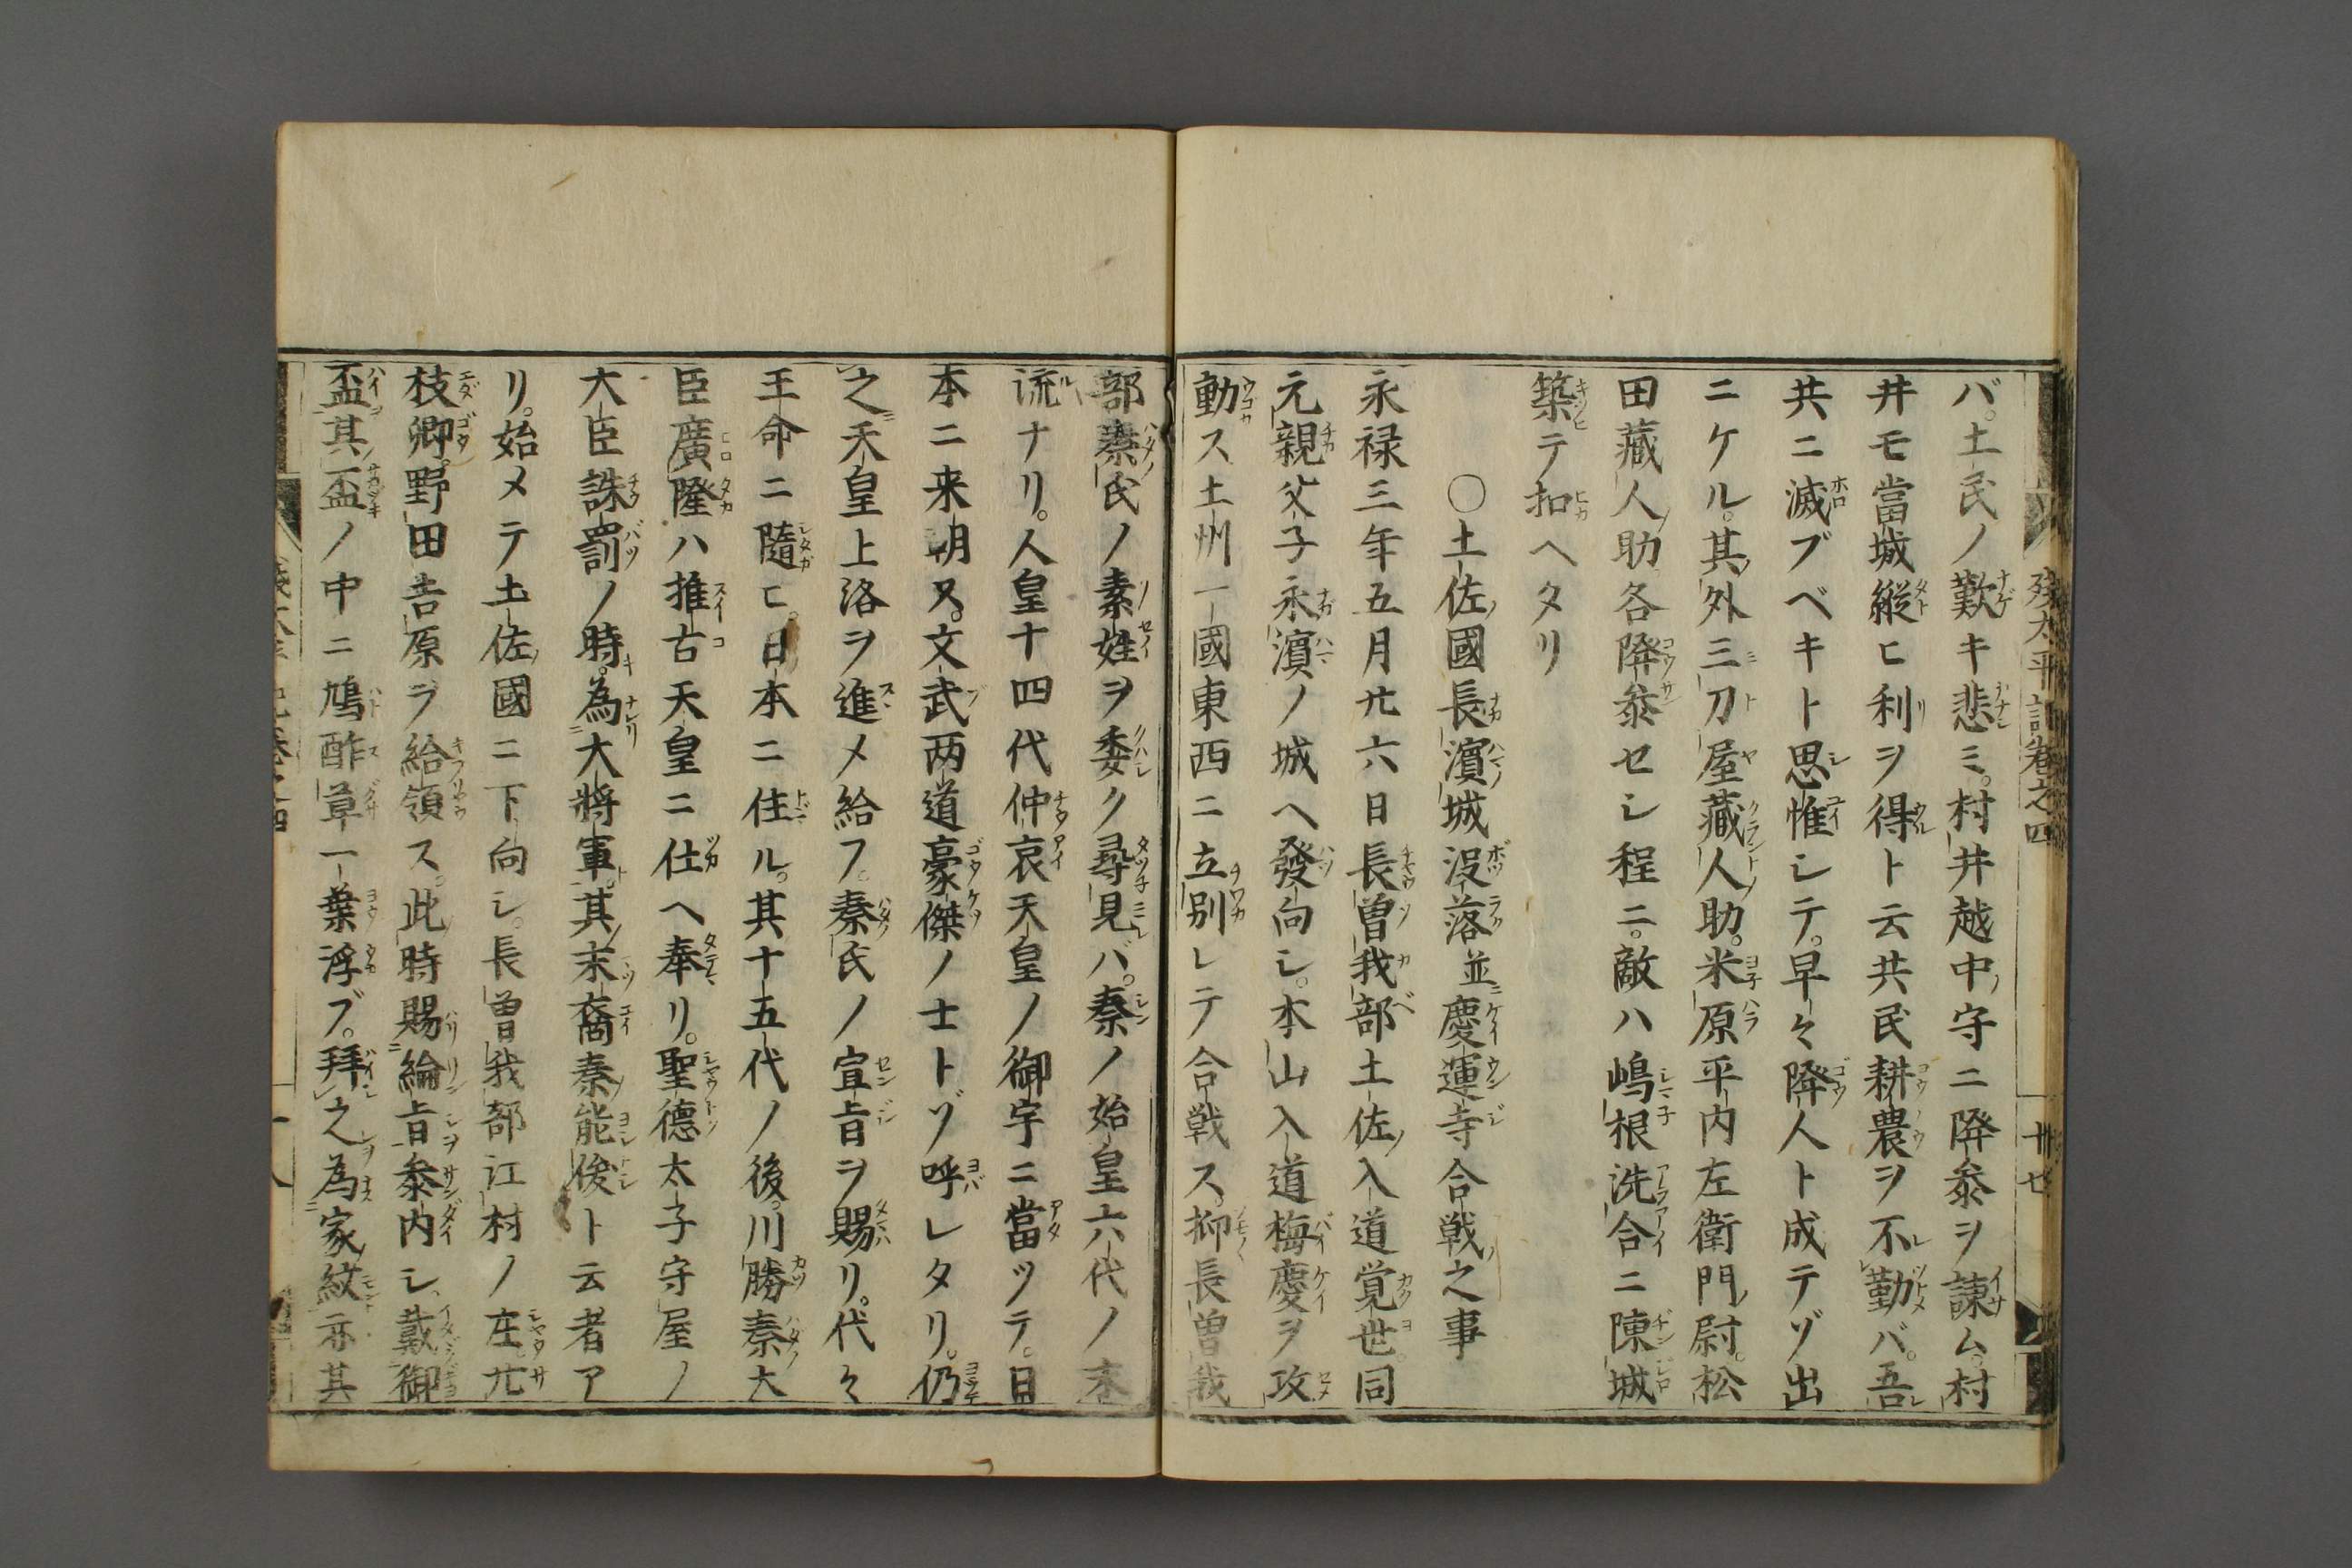 残太平記巻之四
廿七
バ。土民ノ歎キ悲ミ。村井越中守ニ降参ヲ諫ム。村
井モ當城縦ヒ利ヲ得ト云共民耕農ヲ不勤バ。吾
共ニ滅ブベキト思惟シテ。早々降人ト成テゾ出
ニケル。其外三刀屋藏人助。米原平内左衛門尉。松
田藏人助各降参セシ程ニ。敵ハ嶋根洗合ニ陳城
築テ扣ヘタリ
〇土佐國長濵城没落並慶運寺合戦之事
永禄三年五月廿六日長曽我部土佐入道覚世。同
元親父子永濵ノ城ヘ發向シ。本山入道梅慶ヲ攻
動ス土州一國東西ニ立別レテ合戦ス。抑長曽我
部秦氏ノ素姓ヲ委ク尋見バ。秦ノ始皇六代ノ末
流ナリ。人皇十四代仲哀天皇ノ御宇ニ當ツテ。日
本ニ来朝ス。文武两道豪傑ノ士トゾ呼レタリ。仍
之天皇上洛ヲ進メ給フ。秦氏ノ宣旨ヲ賜リ。代々
王命ニ隨ヒ。日本ニ住ル。其十五代ノ後。川勝秦大
臣廣隆ハ推古天皇ニ仕ヘ奉リ。聖德太子守屋ノ
大臣誅罰ノ時。為大將軍。其末裔秦能俊ト云者ア
リ。始メテ土佐國ニ下向シ。長曽我部江村ノ庄。廾
枝卿。野田吉原ヲ給領ス。此時賜綸旨参内シ、戴御
盃其盃ノ中ニ鳩酢草一葉浮ブ。拜之為家紋亦其